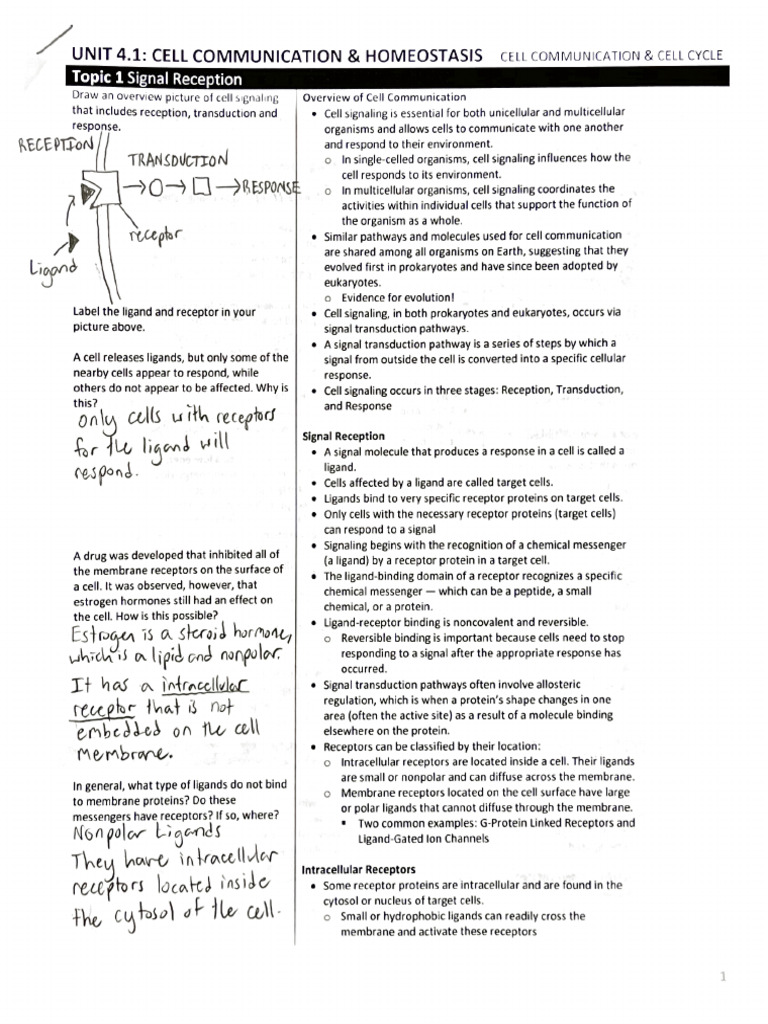 UNIT 4.1: CELL COMMUNICATION & HOMEOSTASIS CELL COMMUNICATION & CELL CYCLE
Topic 1 Signal Reception
Draw an overview picture of cell signaling
that includes reception, transduction and
response.
RECEPTION
TRANSDUCTION
RESPONSE
receptor
Ligand
Label the ligand and receptor in your
picture above.
A cell releases ligands, but only some of the
nearby cells appear to respond, while
others do not appear to be affected. Why is
this?
Only cells with receptors
for the ligand will
respond.
A drug was developed that inhibited all of
the membrane receptors on the surface of
a cell. It was observed, however, that
estrogen hormones still had an effect on
the cell. How is this possible?
Estrogen is a steroid hormone,
which is a lipid and nonpolar.
It has a intracellular
receptor that is not
embedded on the cell
membrane.
In general, what type of ligands do not bind
to membrane proteins? Do these
messengers have receptors? If so, where?
Nonpolar Ligands
They have intracellular
receptors located inside
the cytosol of the cell.
Overview of Cell Communication
• Cell signaling is essential for both unicellular and multicellular
organisms and allows cells to communicate with one another
and respond to their environment.
o In single-celled organisms, cell signaling influences how the
cell responds to its environment.
o In multicellular organisms, cell signaling coordinates the
activities within individual cells that support the function of
the organism as a whole.
• Similar pathways and molecules used for cell communication
are shared among all organisms on Earth, suggesting that they
evolved first in prokaryotes and have since been adopted by
eukaryotes.
o Evidence for evolution!
• Cell signaling, in both prokaryotes and eukaryotes, occurs via
signal transduction pathways.
• A signal transduction pathway is a series of steps by which a
signal from outside the cell is converted into a specific cellular
response.
• Cell signaling occurs in three stages: Reception, Transduction,
and Response
Signal Reception
• A signal molecule that produces a response in a cell is called a
ligand.
• Cells affected by a ligand are called target cells.
• Ligands bind to very specific receptor proteins on target cells.
• Only cells with the necessary receptor proteins (target cells)
can respond to a signal
• Signaling begins with the recognition of a chemical messenger
(a ligand) by a receptor protein in a target cell.
• The ligand-binding domain of a receptor recognizes a specific
chemical messenger — which can be a peptide, a small
chemical, or a protein.
• Ligand-receptor binding is noncovalent and reversible.
o Reversible binding is important because cells need to stop
responding to a signal after the appropriate response has
occurred.
• Signal transduction pathways often involve allosteric
regulation, which is when a protein's shape changes in one
area (often the active site) as a result of a molecule binding
elsewhere on the protein.
• Receptors can be classified by their location:
o Intracellular receptors are located inside a cell. Their ligands
are small or nonpolar and can diffuse across the membrane.
o Membrane receptors located on the cell surface have large
or polar ligands that cannot diffuse through the membrane.
▪ Two common examples: G-Protein Linked Receptors and
Ligand-Gated Ion Channels
Intracellular Receptors
• Some receptor proteins are intracellular and are found in the
cytosol or nucleus of target cells.
o Small or hydrophobic ligands can readily cross the
membrane and activate these receptors
1